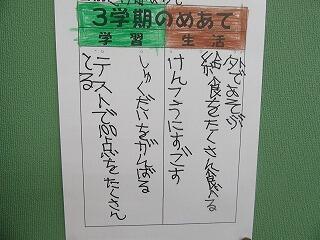 3学期のめあて
学習
生活
外であそぶ
給食をたくさん食べる
けんこうにすごす
しゅくだいをがんばる
テストで100点をたくさん
とる